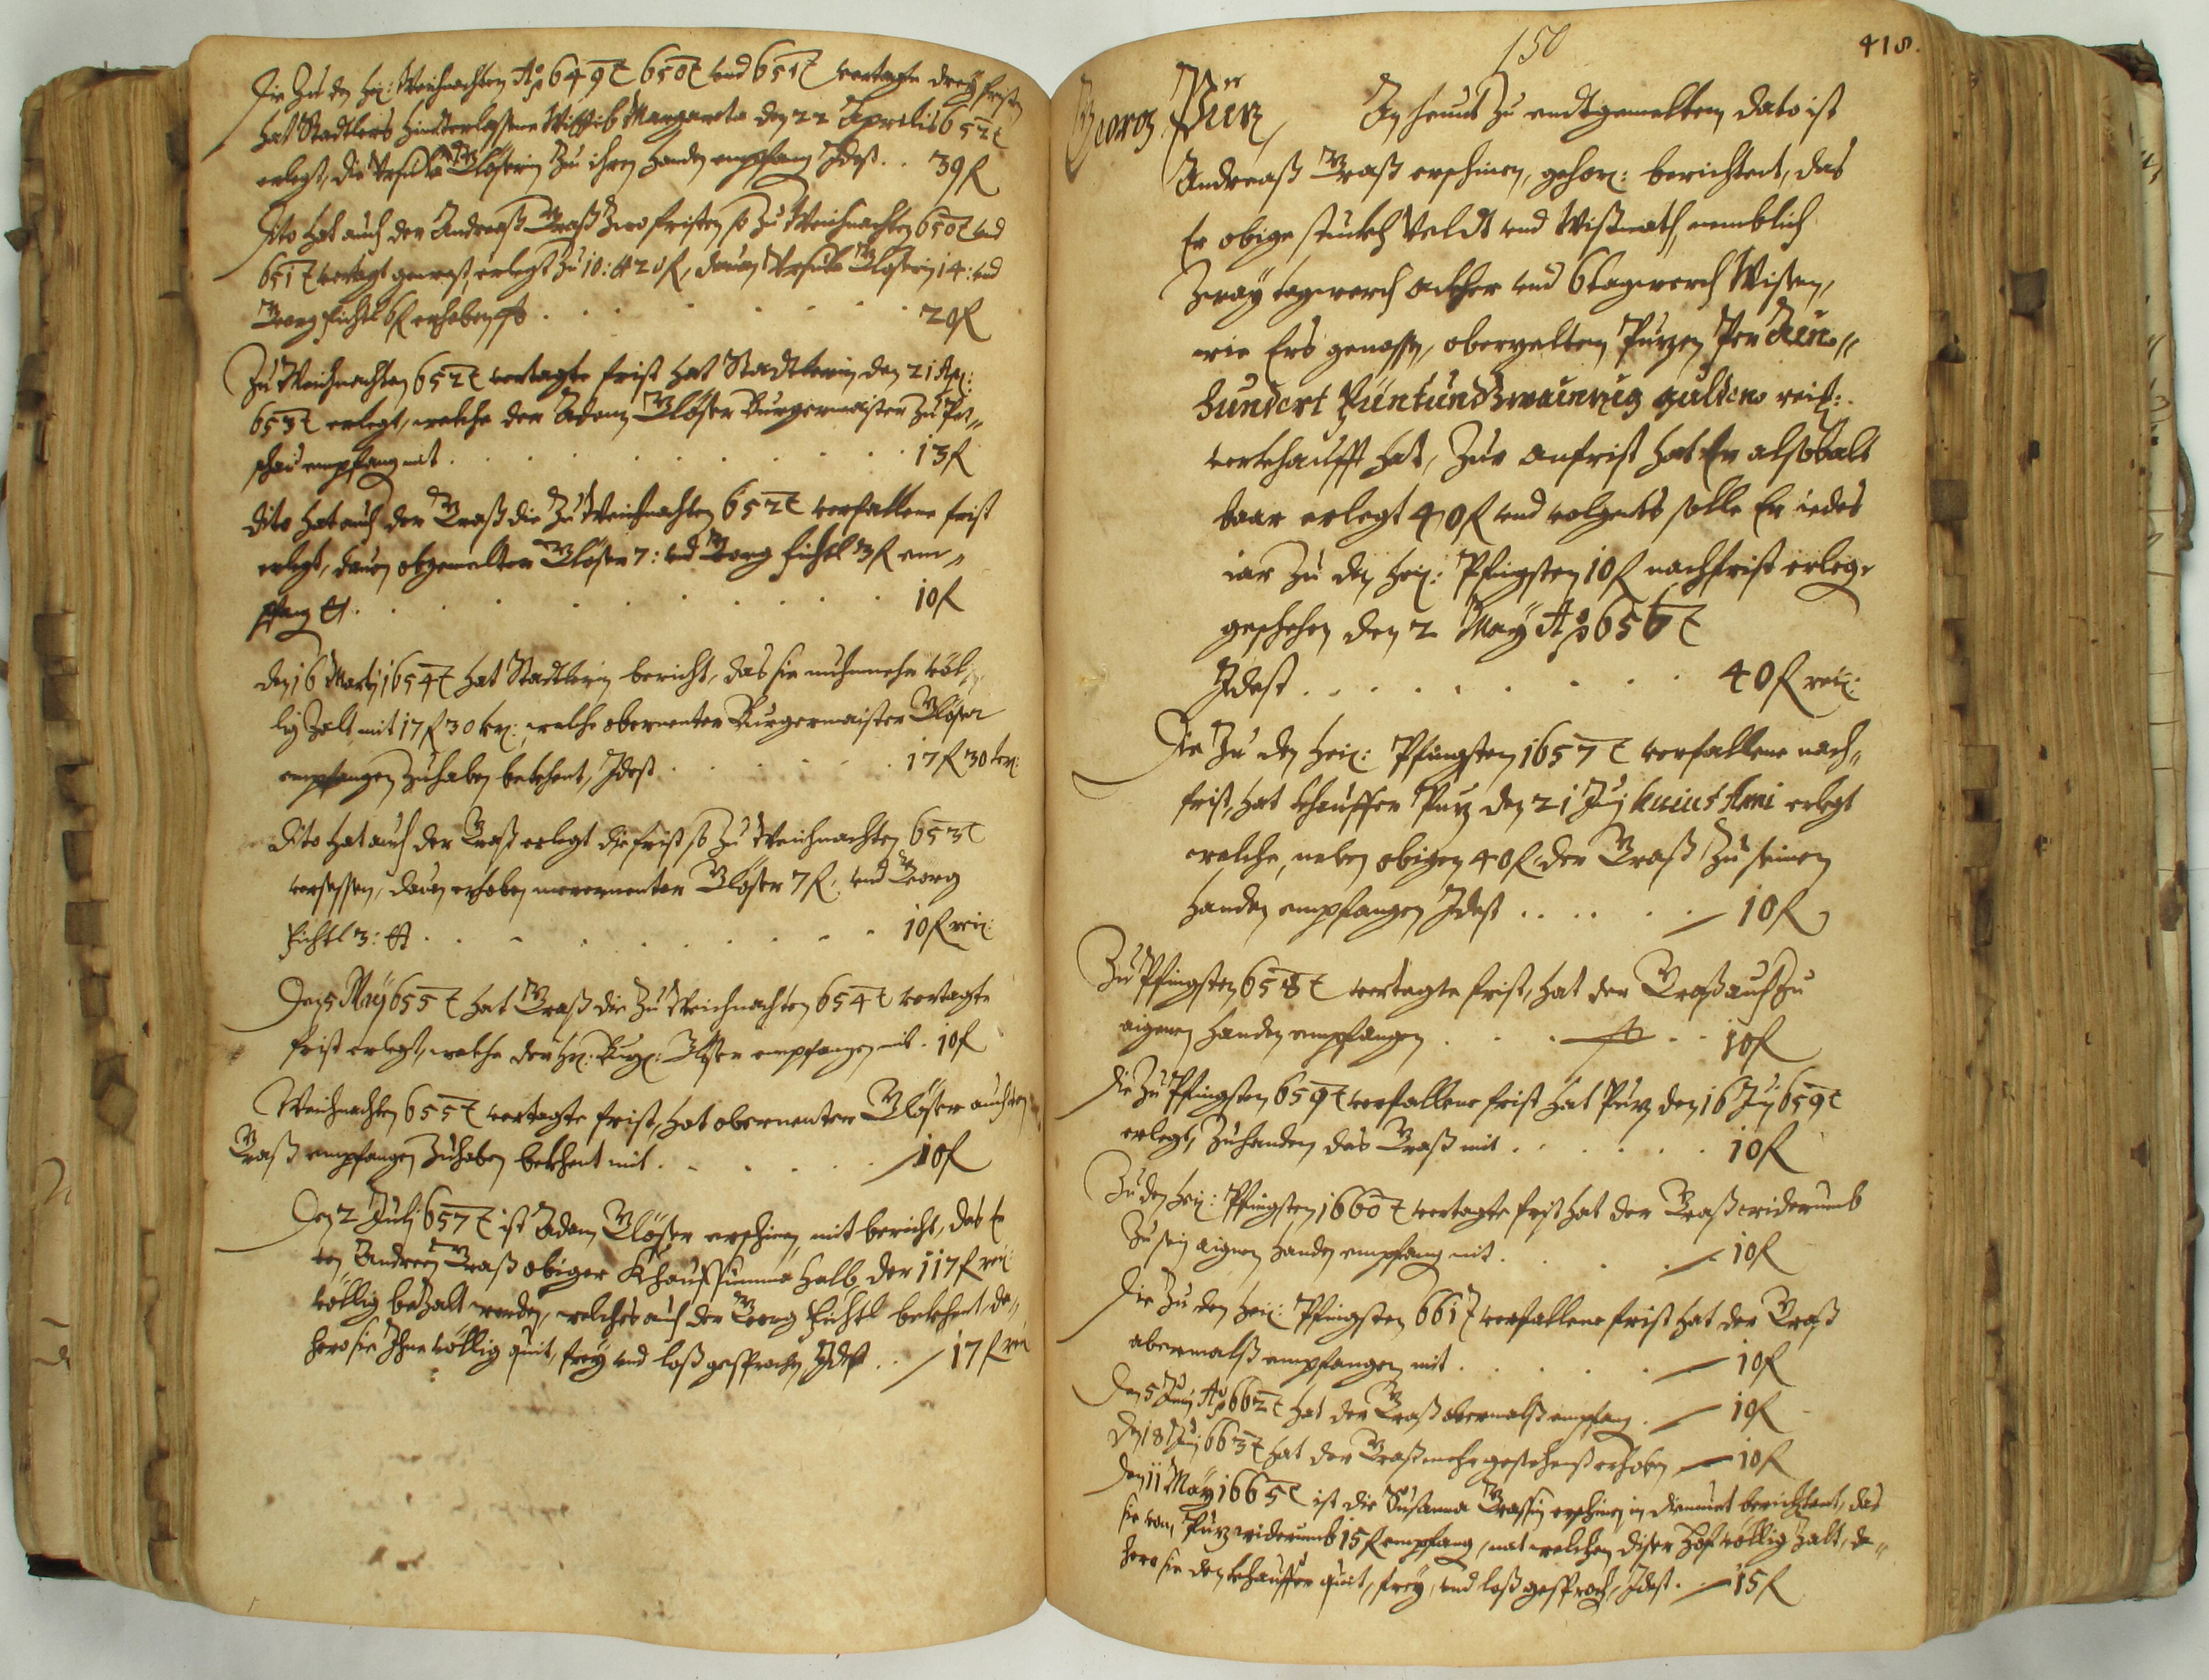 Die Zu den Hey: Weihnachten Aō 649t 650t vnd 651t vertagte drey fristen
Hat Stadtlers hinterlassene Wittib Margareta den 22 Aprilis 652t
erlegt, die Ursula Glöserin Zu ihren Handen empfang Idest . . 39 f
Dito hat auch der Andreaß Graß Zwo fristen so Zu Weihnachten 650t vnd
651t vertagt gewest, erlegt Zu 10: tt 20 f, dauon Ursula Gloserin 14: vnd
Georg Fichtl 6 f erhoben 20 f
Zu Weihnachten 652t vertagte frist Hat Stadtlerin den 21
653t erlegt, welche der Adam Glöser Burgermaister Zu
empfang mit . . . 13 f
dito Hat auch der Graß die Zu Weihnachten 652t verfallene frist
erlegt, dauon obgemelter Glöser 7: vnd Georg Fichtl 3 f em„
pfang tt . . . 10 f
den 16 Martj 1654t Hat Stadtlerin bericht, das sie nuhnmehr völ„
lig Zalt mit 17 f 30 kr: welche obernenter Burgermaister Glöser
empfangen Zuhaben bekhent, Idest . . . 17 f 30 kr:
Dito Hat auch der Graß erlegt die frist so Zu Weihnachten 653t
versessen, dauon erhoben mererenter Glöser 7 f, vnd Georg
Fichtl 3: tt . . . 10 f rei:
Den 5 May 655t Hat Graß die Zu Weihnachten 654t vertagte
frist erlegt, welche der Hr: Burg: Glöser empfangen mit . 10 f
Weihnachten 655t vertagte frist, Hat obernenter Glöser auch von
Graß empfangen Zuhaben bekhent mit . . . 10 f
Den 2 Julj 657t ist Adam Glöser erschinen, mit bericht, das Er
von Andreen Graß obiger Khauffsumma halb, der 117 f rei:
völlig bezalt worden, welches auch der Georg Fichtl bekhent, da„
hero sie Ihne völlig quit, frey vnd loß gesprochen Idest . . 17 f rei:
150
418.
Georg Pürz
In heunt Zu endtgemeltem dato ist
Andreaß Graß erschinen, gehor: berichtent, das
Er obige stuckh Veldt vnd Wißmath, nemblich
Zway tagwerch ackher vnd 6 tagwerch Wisen,
wie Ers genossen, obervelten Purzen Per Ain„
hundert Fünfundzwainzig gulden reih:
verkhaufft hat, Zur anfrist hat Er alsobalt
baar erlegt 40 f vnd volgents solle Er iedes
iar Zu den Hey: Pfingsten 10 f nachfrist erlegen
geschehen den 2 May Aō 656t
Idest . . . 40 f rei:
Die Zu den Hey: Pfingsten 1657t verfallene nach„
frist, hat khauffer Purz den 21 Junj huius Anni erlegt
welche, neben obigen 40 f der Graß Zu seinen
Handen empfangen Idest . . . 10 f
Zu Pfingsten 658t vertagte frist, Hat der Graß auch Zu
aignen Handen empfangen . . . 10 f
Die Zu Pfingsten 659t verfallene frist Hat Purz den 16 Junj 659t
erlegt, Zuhanden des Graß mit . . . 10 f
Zu den Hey: Pfingsten 1660t vertagte frist hat der Graß widerumb
Zu sein aignen Handen empfang mit . . . 10 f
Die Zu den Hey: Pfingsten 661t verfallene frist hat der Graß
abermalß empfangen mit . . . 10 f
Den 5 Junj Aō 662t Hat der Graß abermalß empfang . 10 f
Den 18 Junj 663t Hat der Graß mehr erhoben 10 f
Den 11 May 1665t ist die Susanna Graßin erschinen berichtent, das
sie von Purz widerumb 15 f empfang, mit welchen diser völlig Zalt, da„
hero sie den khauffer quit, frey, vnd loß gesproch, Idest . 15 f